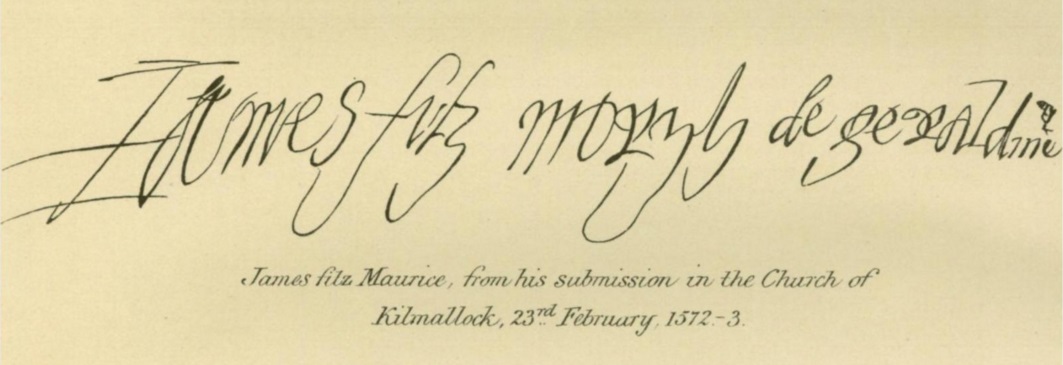 James fitz morys de geraldine
James fitz Maurice, from his submission in the Church of
Kilmallock, 23rd February, 1572-3.